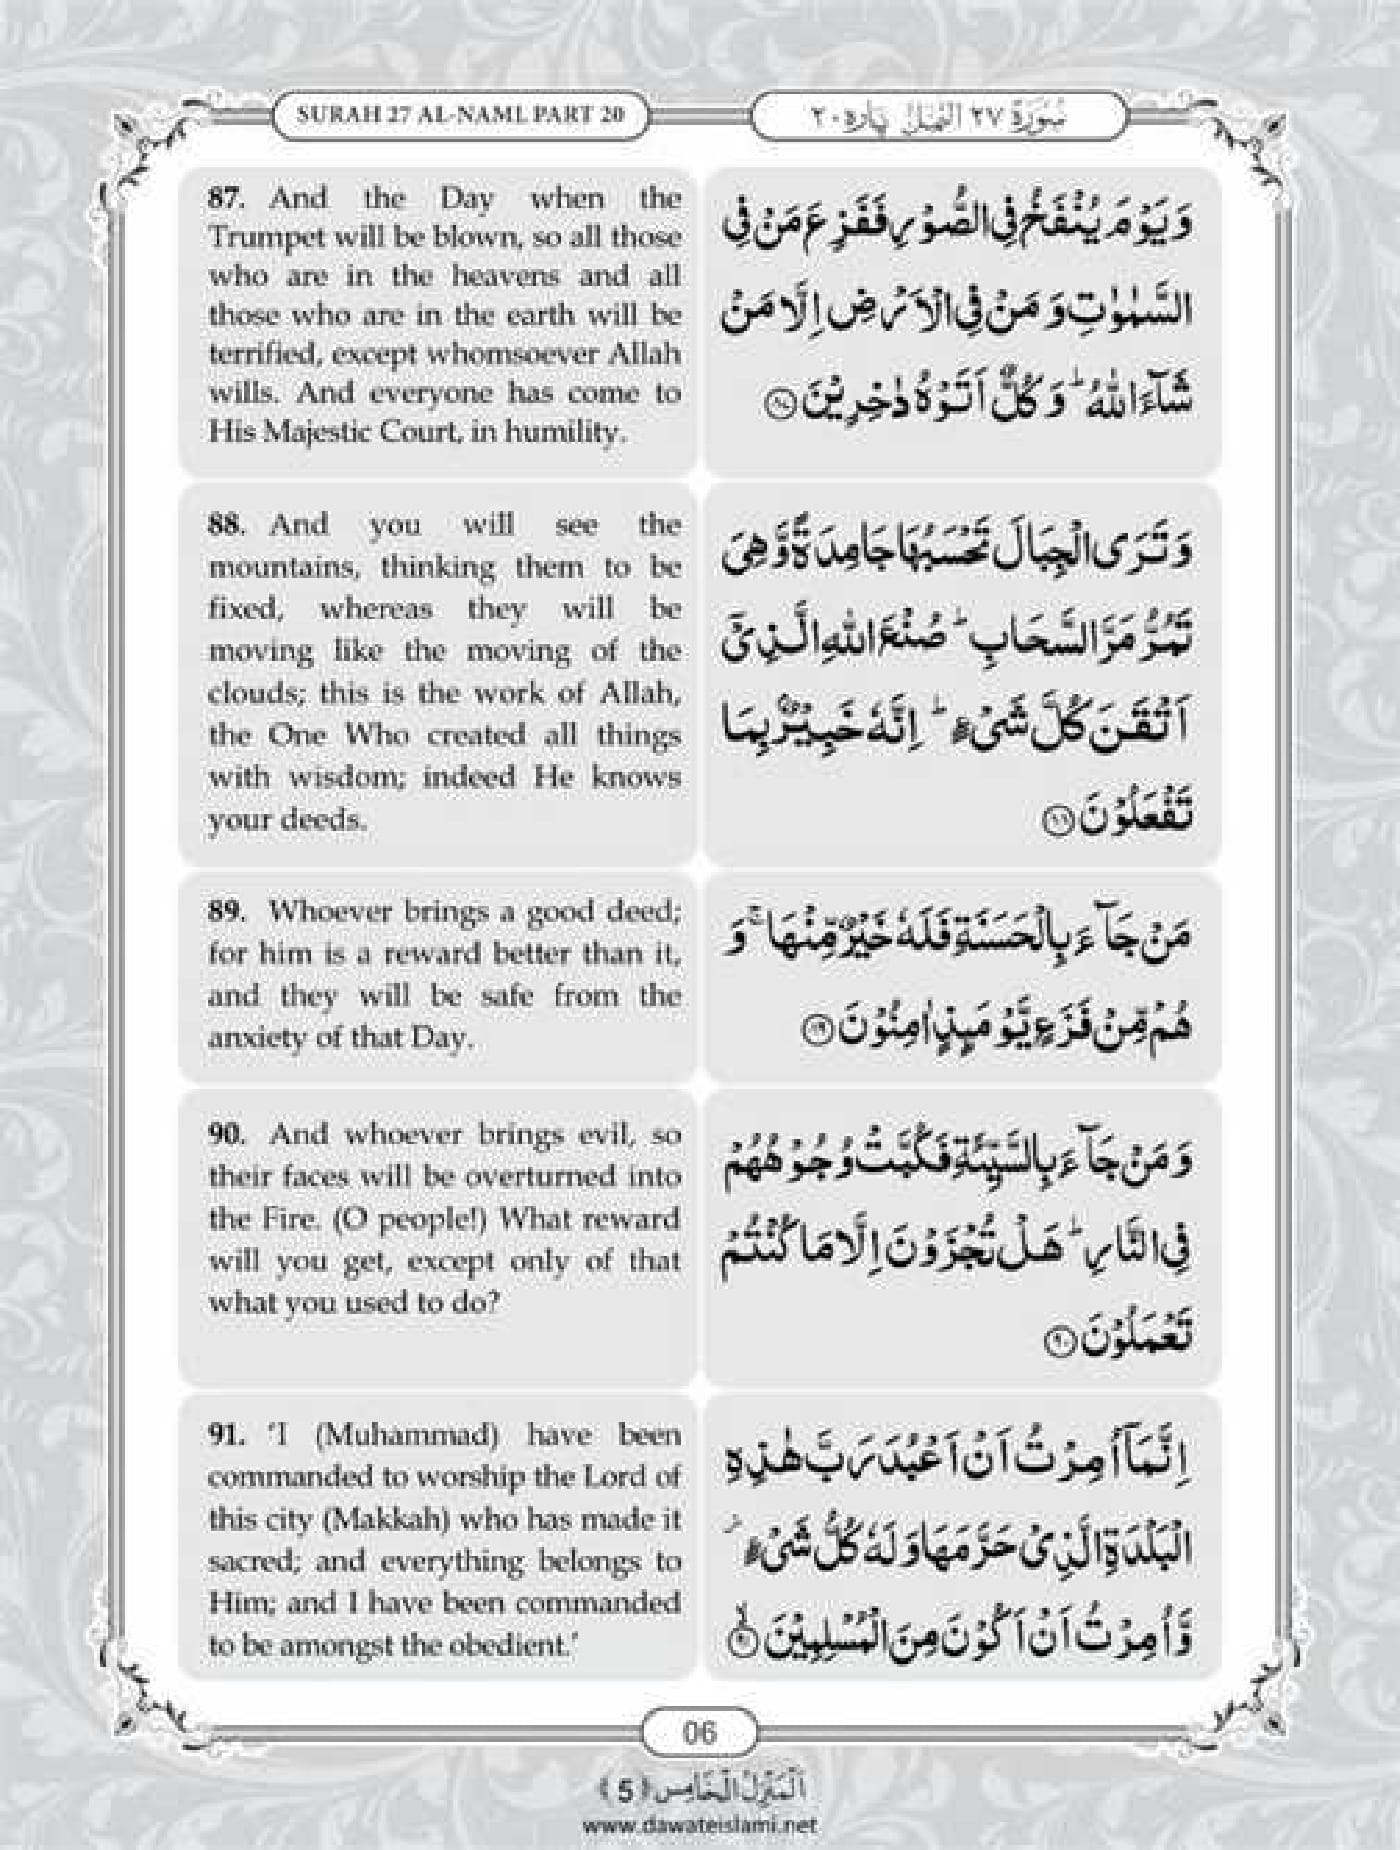 SURAH 27 AL-NAML PART 20
سُوْرَةُ ٢٧ النَّمْل پارہ ٢٠
87. And the Day when the
Trumpet will be blown, so all those
who are in the heavens and all
those who are in the earth will be
terrified, except whomsoever Allah
wills. And everyone has come to
His Majestic Court, in humility.
وَيَوْمَ يُنْفَخُ فِي الصُّوْرِ فَفَزِعَ مَنْ فِي
السَّمٰوٰتِ وَ مَنْ فِي الْاَرْضِ اِلَّا مَنْ
شَآءَ اللّٰهُ ؕ وَ كُلٌّ اَتَوْهُ دٰخِرِيْنَ ۝۸۷
88. And you will see the
mountains, thinking them to be
fixed, whereas they will be
moving like the moving of the
clouds; this is the work of Allah,
the One Who created all things
with wisdom; indeed He knows
your deeds.
وَ تَرَى الْجِبَالَ تَحْسَبُهَا جَامِدَةً وَّ هِيَ
تَمُرُّ مَرَّ السَّحَابِ ؕ صُنْعَ اللّٰهِ الَّذِيْۤ
اَتْقَنَ كُلَّ شَيْءٍ ؕ اِنَّهٗ خَبِيْرٌۢ بِمَا
تَفْعَلُوْنَ ۝۸۸
89. Whoever brings a good deed;
for him is a reward better than it,
and they will be safe from the
anxiety of that Day.
مَنْ جَآءَ بِالْحَسَنَةِ فَلَهٗ خَيْرٌ مِّنْهَا ۚ وَ
هُمْ مِّنْ فَزَعٍ يَّوْمَىِٕذٍ اٰمِنُوْنَ ۝۸۹
90. And whoever brings evil, so
their faces will be overturned into
the Fire. (O people!) What reward
will you get, except only of that
what you used to do?
وَ مَنْ جَآءَ بِالسَّيِّئَةِ فَكُبَّتْ وُجُوْهُهُمْ
فِي النَّارِ ؕ هَلْ تُجْزَوْنَ اِلَّا مَا كُنْتُمْ
تَعْمَلُوْنَ ۝۹۰
91. ‘I (Muhammad) have been
commanded to worship the Lord of
this city (Makkah) who has made it
sacred; and everything belongs to
Him; and I have been commanded
to be amongst the obedient.’
اِنَّمَاۤ اُمِرْتُ اَنْ اَعْبُدَ رَبَّ هٰذِهِ
الْبَلْدَةِ الَّذِيْ حَرَّمَهَا وَ لَهٗ كُلُّ شَيْءٍ ؗ
وَّ اُمِرْتُ اَنْ اَكُوْنَ مِنَ الْمُسْلِمِيْنَ ۝۹۱
06
اَلْمَنْزِلُ الْخَامِس ﴿5﴾
www.dawateislami.net